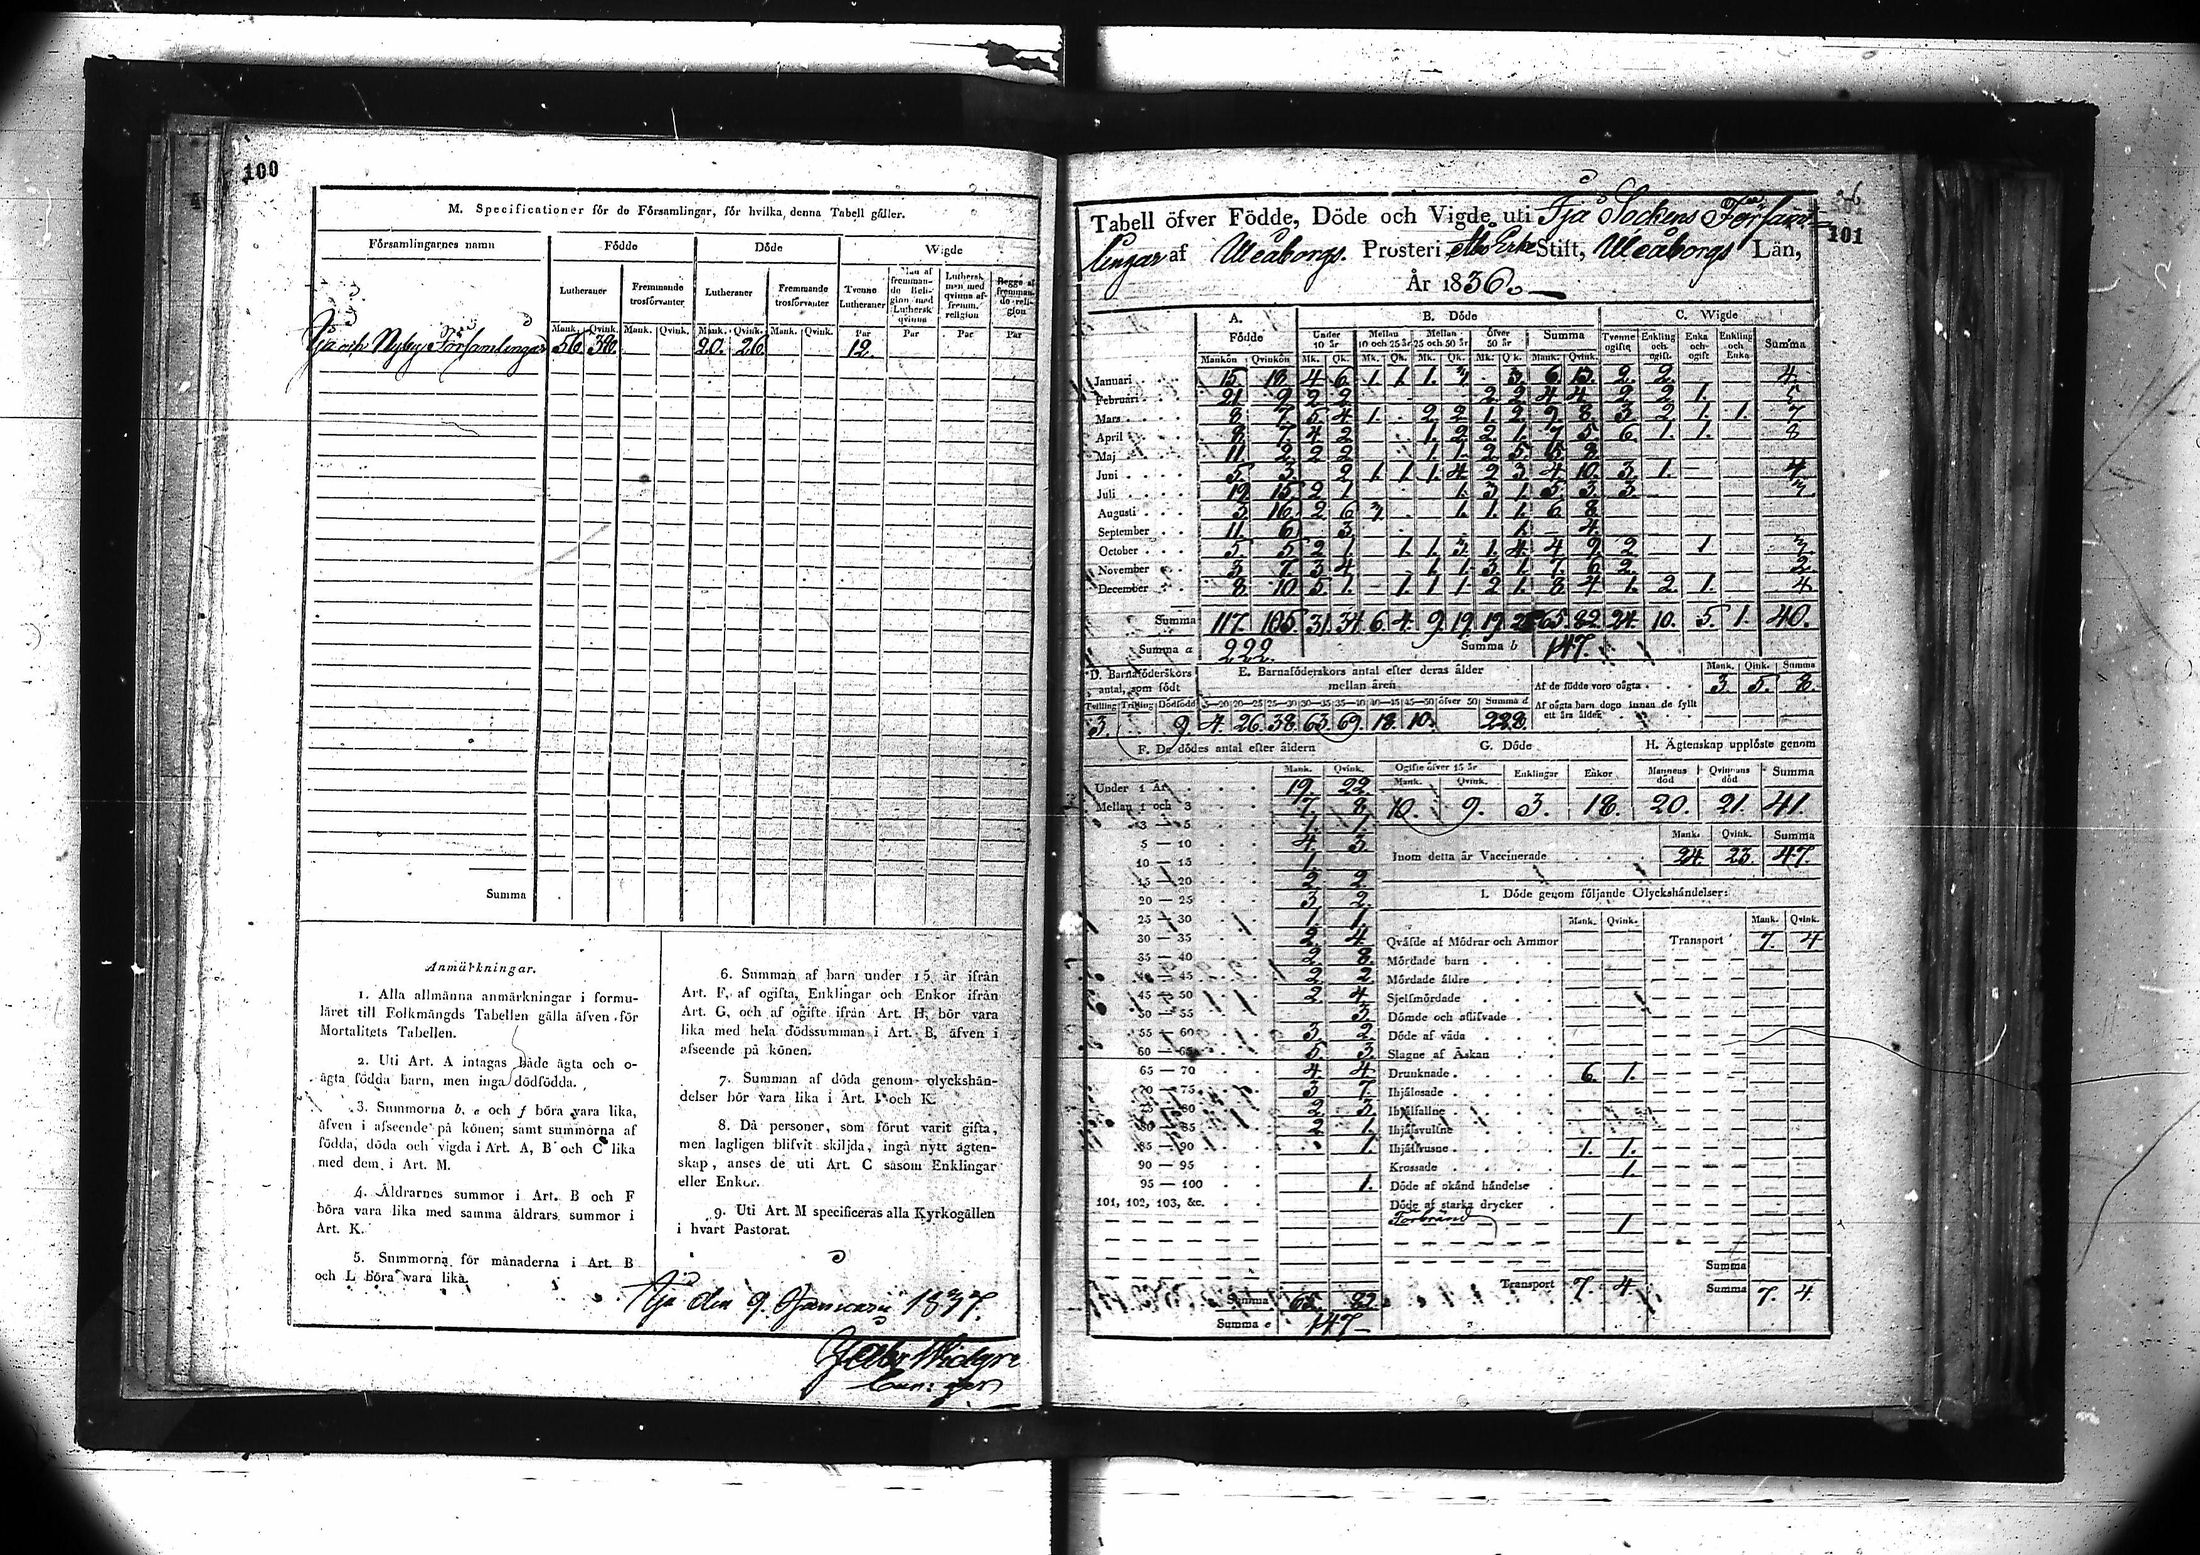 100
M. Specificationer för de Församlingar, för hvilka denna Tabell gäller.
Församlingarnes namn
Födde
Döde
Wigde
Lutheraner
Fremmande trosförvanter
Lutheraner
Fremmande trosförvanter
Tvenne Lutheraner
Man af fremmande Religion med Luthersk qvinna
Luthersk man med qvinna af fremm. religion
Begge af fremmande religion
Mank. Qvink. Mank. Qvink. Mank. Qvink. Mank. Qvink. Par Par Par Par
Ijo och Nyby Församlingar 56 38 20. 26 12.
Summa
Anmärkningar.
1. Alla allmänna anmärkningar i formu-
läret till Folkmängds Tabellen gälla äfven för
Mortalitets Tabellen.
2. Uti Art. A intagas både ägta och o-
ägta födda barn, men inga dödfödda.
3. Summorna b, e och f böra vara lika,
äfven i afseende på könen; samt summorna af
födda, döda och vigda i Art. A, B och C lika
med dem i Art. M.
4. Åldrarnes summor i Art. B och F
böra vara lika med samma åldrars summor i
Art. K.
5. Summorna för månaderna i Art. B
och L böra vara lika.
6. Summan af barn under 15 år ifrån
Art. F, af ogifta, Enklingar och Enkor ifrån
Art. G, och af ogifte ifrån Art. H, bör vara
lika med hela dödssumman i Art. B, äfven i
afseende på könen.
7. Summan af döda genom olyckshän-
delser bör vara lika i Art. I och K.
8. Då personer, som förut varit gifta,
men lagligen blifvit skiljda, ingå nytt ägten-
skap, anses de uti Art. C såsom Enklingar
eller Enkor.
9. Uti Art. M specificeras alla Kyrkogällen
i hvart Pastorat.
Ijo den 9. Januarii 1837.
101
Tabell öfver Födde, Döde och Vigde uti Ijo Sockens Försam-
lingar af Uleåborgs Prosteri Åbo Erke Stift, Uleåborgs Län,
År 1836.
A. Födde
B. Döde
C. Wigde
Under 10 år
Mellan 10 och 25 år
Mellan 25 och 50 år
öfver 50 år
Summa
Tvenne ogifte
Enkling och ogift
Enka och ogift
Enkling och Enka
Summa
Mankön Qvinkön Mk. Qk. Mk. Qk. Mk. Qk. Mk. Qk. Mank. Qvink.
Januari 15. 18. 4 6. 1. 1. 1. 3. 3. 6. 13. 2. 2. 4.
Februari 21. 9. 2 2 2 2 4 4 2 2 1. 5.
Mars 8 7 5 4 1. 2 2 1. 2. 9. 8. 3 2. 1. 1. 7
April 8. 7. 4 2 1. 2. 2. 1. 7. 5. 6. 1. 1. 8
Maj 11. 2 2 2 1. 1. 2 5.
Juni 5. 3. 2 1. 1. 1. 4. 2 3 4. 10. 3. 1. 4
Juli 19. 15. 2 1 1. 3 1. 5. 3. 3 3
Augusti 3 16. 2 6 3 1. 1. 1. 6. 8
September 11. 6. 3 1. 4.
October 5. 5 2 1. 1. 1. 3. 1. 4. 4 9. 2 1 3.
November 3 7. 3 4 1. 1. 3. 1. 7. 6. 2. 2.
December 8. 10. 5. 1. 1. 1. 1. 2. 1. 8 4 1. 2. 1. 4
Summa 117. 105. 31. 34. 6. 4. 9. 19. 19. 25 65. 82. 24. 10. 5. 1. 40.
Summa a 222. Summa b 147.
D. Barnaföderskors antal, som födt
E. Barnaföderskors antal efter deras ålder mellan åren
Mank. Qvink. Summa
Af de födde voro oägta 3. 5. 8.
Af oägta barn dogo innan de fyllt ett års ålder
Tvilling Trilling Dödfödd 20—25 25—30 30—35 35—40 40—45 45—50 öfver 50 Summa d
3. 9. 4. 26. 38. 63. 69. 18. 10.
F. De dödes antal efter åldern
G. Döde
H. Ägtenskap upplöste genom
Mank. Qvink.
Ogifte öfver 15 år
Mank. Qvink.
Enklingar
Enkor
Mannens död
Qvinnans död
Summa
10. 9. 3. 18. 20. 21. 41.
Mank. Qvink. Summa
Inom detta år Vaccinerade 24. 23. 47.
Under 1 År 19. 22.
Mellan 1 och 3 7 8
3 — 5 1. 1.
5 — 10 4. 3
10 — 15 1.
15 — 20 2 2.
20 — 25 3 2.
25 — 30 1 1
30 — 35 2. 4.
35 — 40 2. 8.
40 — 45 2 2
45 — 50 2 4
50 — 55 3.
55 — 60 3 2
60 — 65 5. 3.
65 — 70 4. 4
70 — 75 3 7.
75 — 80 2 3
80 — 85 2 1.
85 — 90 1.
90 — 95
95 — 100 1.
101, 102, 103, &c.
Summa 65. 82.
Summa e 147
I. Döde genom följande Olyckshändelser:
Mank. Qvink. Mank. Qvink.
Qväfde af Mödrar och Ammor Transport 7. 4
Mördade barn
Mördade äldre
Sjelfmördade
Dömde och aflifvade
Döde af våda
Slagne af Åskan
Drunknade 6. 1.
Ihjälosade
Ihjälfallne
Ihjälsvultne
Ihjälfrusne 1. 1.
Krossade 1.
Döde af okänd händelse
Döde af starka drycker
Förbränd 1
Summa
Transport 7. 4. Summa 7. 4.